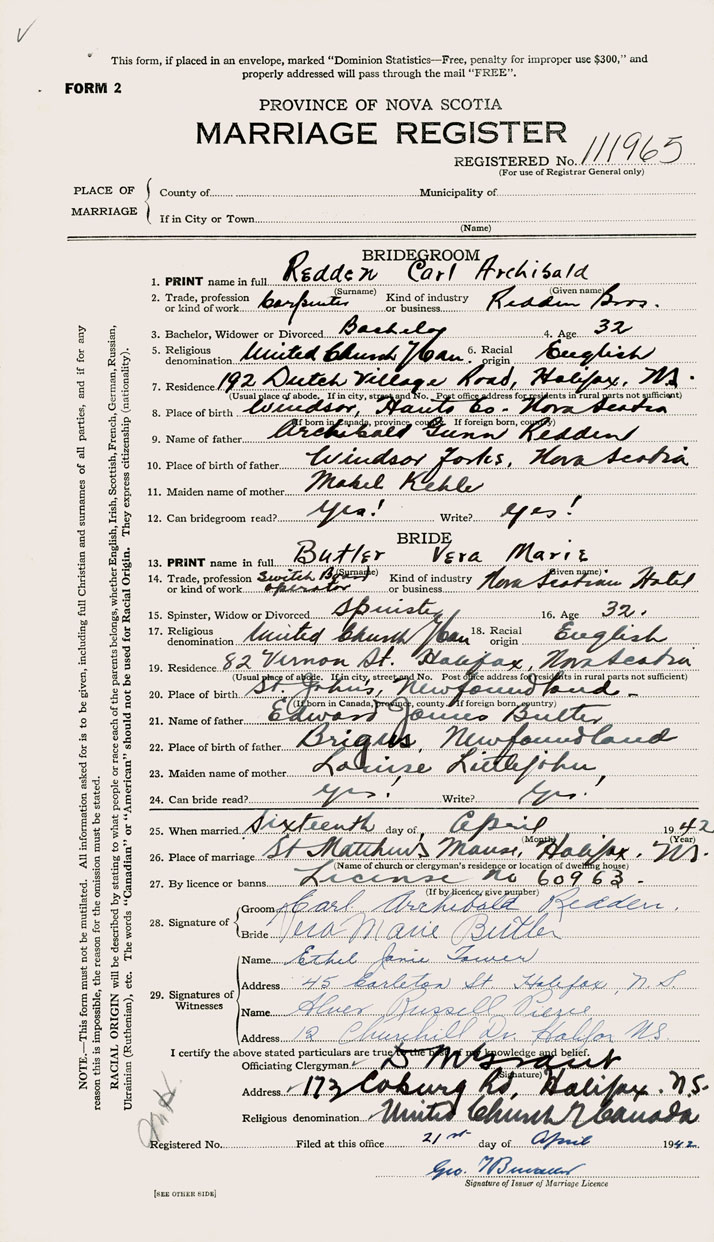 This form, if placed in an envelope, marked "Dominion Statistics—Free, penalty for improper use $300," and
properly addressed will pass through the mail "FREE".
FORM 2
PROVINCE OF NOVA SCOTIA
MARRIAGE REGISTER
REGISTERED No. 111965
(For use of Registrar General only)
PLACE OF MARRIAGE
County of Municipality of
If in City or Town
(Name)
BRIDEGROOM
1. PRINT name in full Redden Carl Archibald
(Surname) (Given name)
2. Trade, profession or kind of work Carpenter Kind of industry or business Redden Bros.
3. Bachelor, Widower or Divorced Bachelor 4. Age 32
5. Religious denomination United Church / Can. 6. Racial origin English
7. Residence 192 Dutch Village Road, Halifax, N.S.
(Usual place of abode. If in city, street and No. Post office address for residents in rural parts not sufficient)
8. Place of birth Windsor, Hants Co. Nova Scotia
(If born in Canada, province, county. If foreign born, country)
9. Name of father Archibald Gunn Redden
10. Place of birth of father Windsor Forks, Nova Scotia
11. Maiden name of mother Mabel Kehle
12. Can bridegroom read? Yes! Write? Yes!
BRIDE
13. PRINT name in full Butler Vera Marie
(Surname) (Given name)
14. Trade, profession or kind of work Switch Board operator Kind of industry or business Nova Scotian Hotel
15. Spinster, Widow or Divorced Spinster 16. Age 32.
17. Religious denomination United Church / Can 18. Racial origin English
19. Residence 82 Vernon St. Halifax, Nova Scotia
(Usual place of abode. If in city, street and No. Post office address for residents in rural parts not sufficient)
20. Place of birth St. John's, Newfoundland
(If born in Canada, province, county. If foreign born, country)
21. Name of father Edward James Butler
22. Place of birth of father Brigus, Newfoundland
23. Maiden name of mother Louise Littlejohn
24. Can bride read? Yes! Write? Yes!
25. When married Sixteenth day of April 1942
(Month) (Year)
26. Place of marriage St Matthew's Manse, Halifax. N.S.
(Name of church or clergyman's residence or location of dwelling house)
27. By licence or banns License No 60963.
(If by licence, give number)
28. Signature of
Groom Carl Archibald Redden.
Bride Vera Marie Butler
29. Signatures of Witnesses
Name Ethel Janie Tower
Address 45 Carleton St. Halifax N.S.
Name Russell
Address 12 Churchill Dr. Halifax N.S.
I certify the above stated particulars are true to the best of my knowledge and belief.
Officiating Clergyman
(Signature)
Address 173 Coburg Rd, Halifax. N.S.
Religious denomination United Church / Canada
Registered No. Filed at this office 21st day of April 1942
Geo.
Signature of Issuer of Marriage Licence
[SEE OTHER SIDE]
NOTE.—This form must not be mutilated. All information asked for is to be given, including full Christian and surnames of all parties, and if for any
reason this is impossible, the reason for the omission must be stated.
RACIAL ORIGIN will be described by stating to what people or race each of the parents belongs, whether English, Irish, Scottish, French, German, Russian,
Ukrainian (Ruthenian), etc. The words "Canadian" or "American" should not be used for Racial Origin. They express citizenship (nationality).